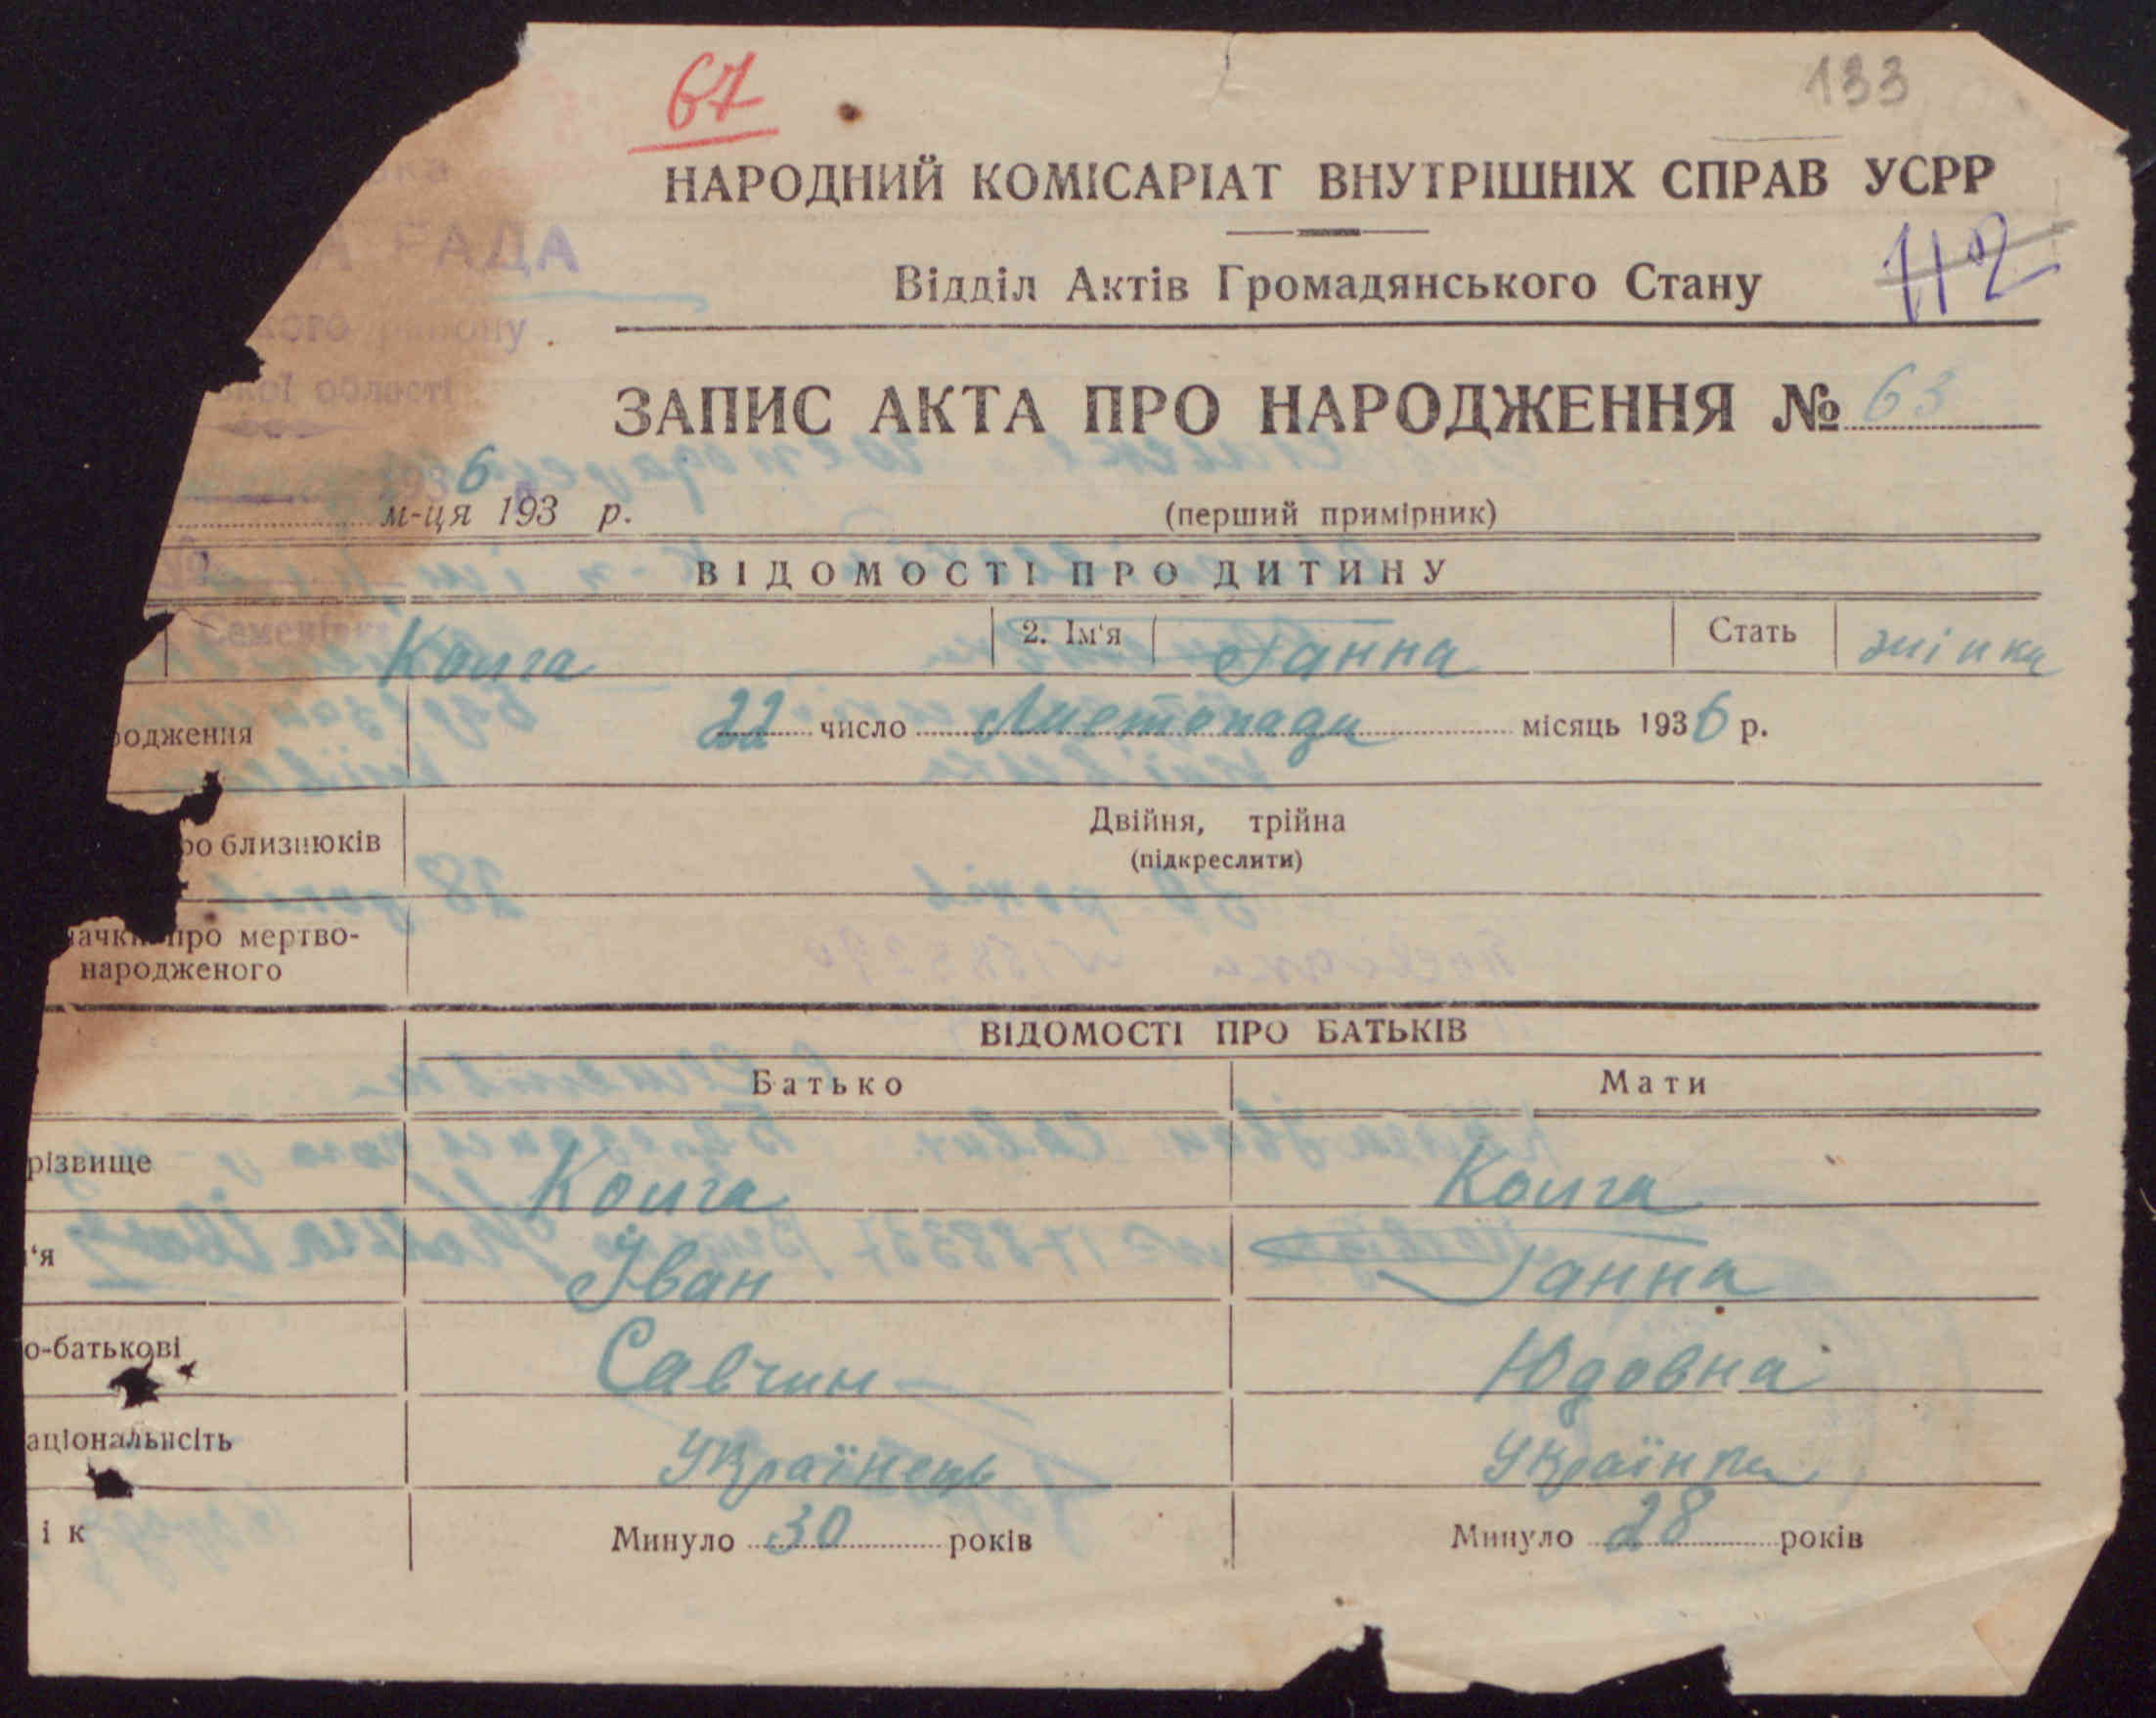 67
133
НАРОДНИЙ КОМІСАРІАТ ВНУТРІШНІХ СПРАВ УСРР
А РАДА
Відділ Актів Громадянського Стану
112
кого району
ської області
ЗАПИС АКТА ПРО НАРОДЖЕННЯ № 63
м-ця 1936 р.
(перший примірник)
ВІДОМОСТІ ПРО ДИТИНУ
Семенівка
Конга 2. Ім'я Ганна Стать жінка
одження 22 число Листопада місяць 1936 р.
ро близнюків Двійня, трійна
(підкреслити)
ачки про мертво-
народженого
ВІДОМОСТІ ПРО БАТЬКІВ
Батько Мати
різвище Конга Конга
'я Іван Ганна
о-батькові Савчин Юдовна
аціональнсіть Українець Українка
ік Минуло 30 років Минуло 28 років